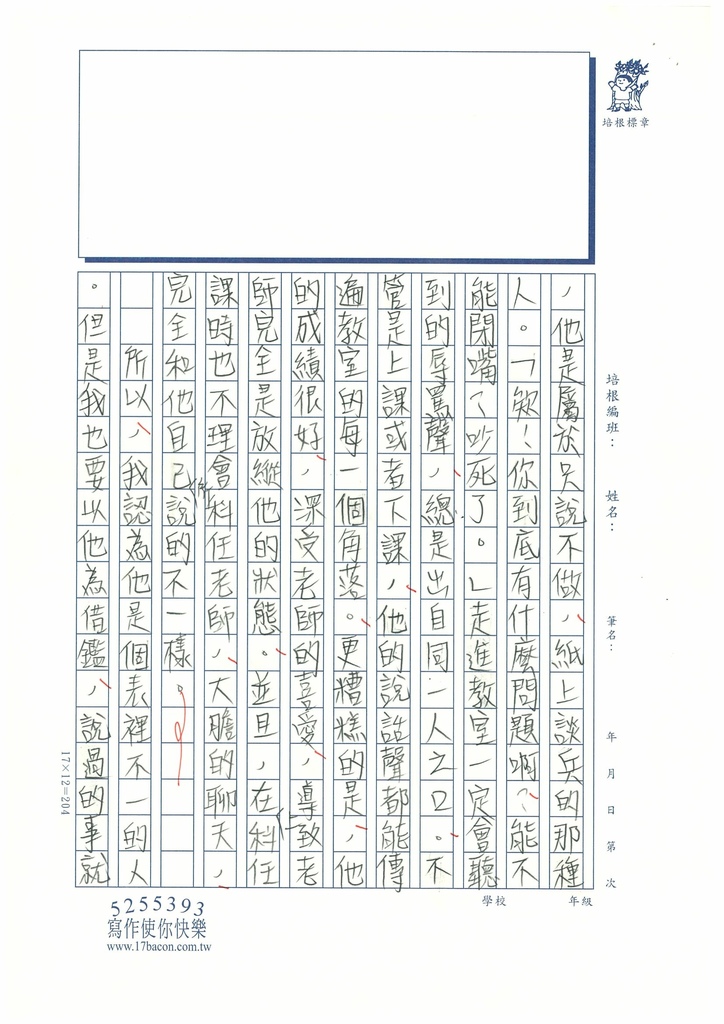 ，他是屬於只說不做，紙上談兵的那種
人。「欸！你到底有什麼問題啊？能不
能閉嘴？吵死了。」走進教室一定會聽
到的辱罵聲，總是出自同一人之口。不
管是上課或者下課，他的說話聲都能傳
遍教室的每一個角落。更糟糕的是，他
的成績很好，深受老師的喜愛，導致老
師完全是放縱他的狀態。並且，在科任
課時也不理會科任老師，大膽的聊天，
完全和他自己所說的不一樣。
所以，我認為他是個表裡不一的人
。但是我也要以他為借鑑，說過的事就
培根標章
培根編班：
姓名：
筆名：
年 月 日 第 次
年級
學校
17×12=204
5255393
寫作使你快樂
www.17bacon.com.tw